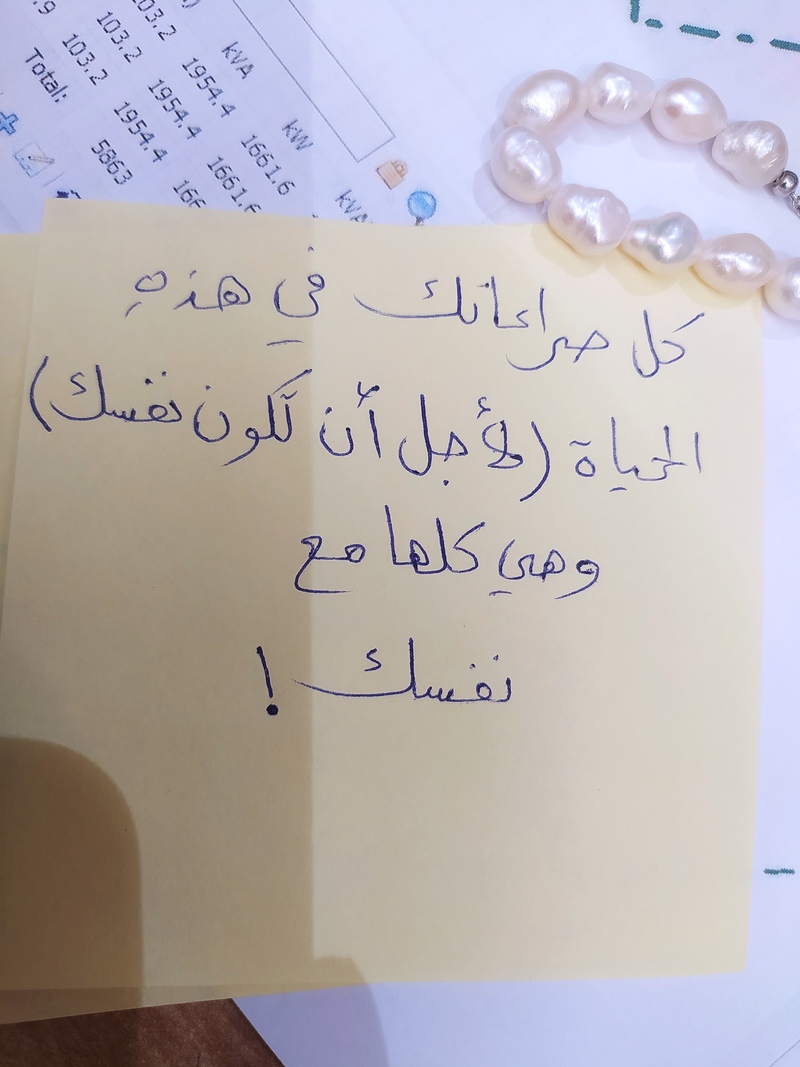 .9 103.2 103.2 103.2
Total:
kVA
1954.4
1954.4
1954.4
5863
kW
1661.6
1661.6
166
kVA
كل صراعاتك في هذهِ
الحياة (لأجل أن تكون نفسك)
وهي كلها مع
نفسك !